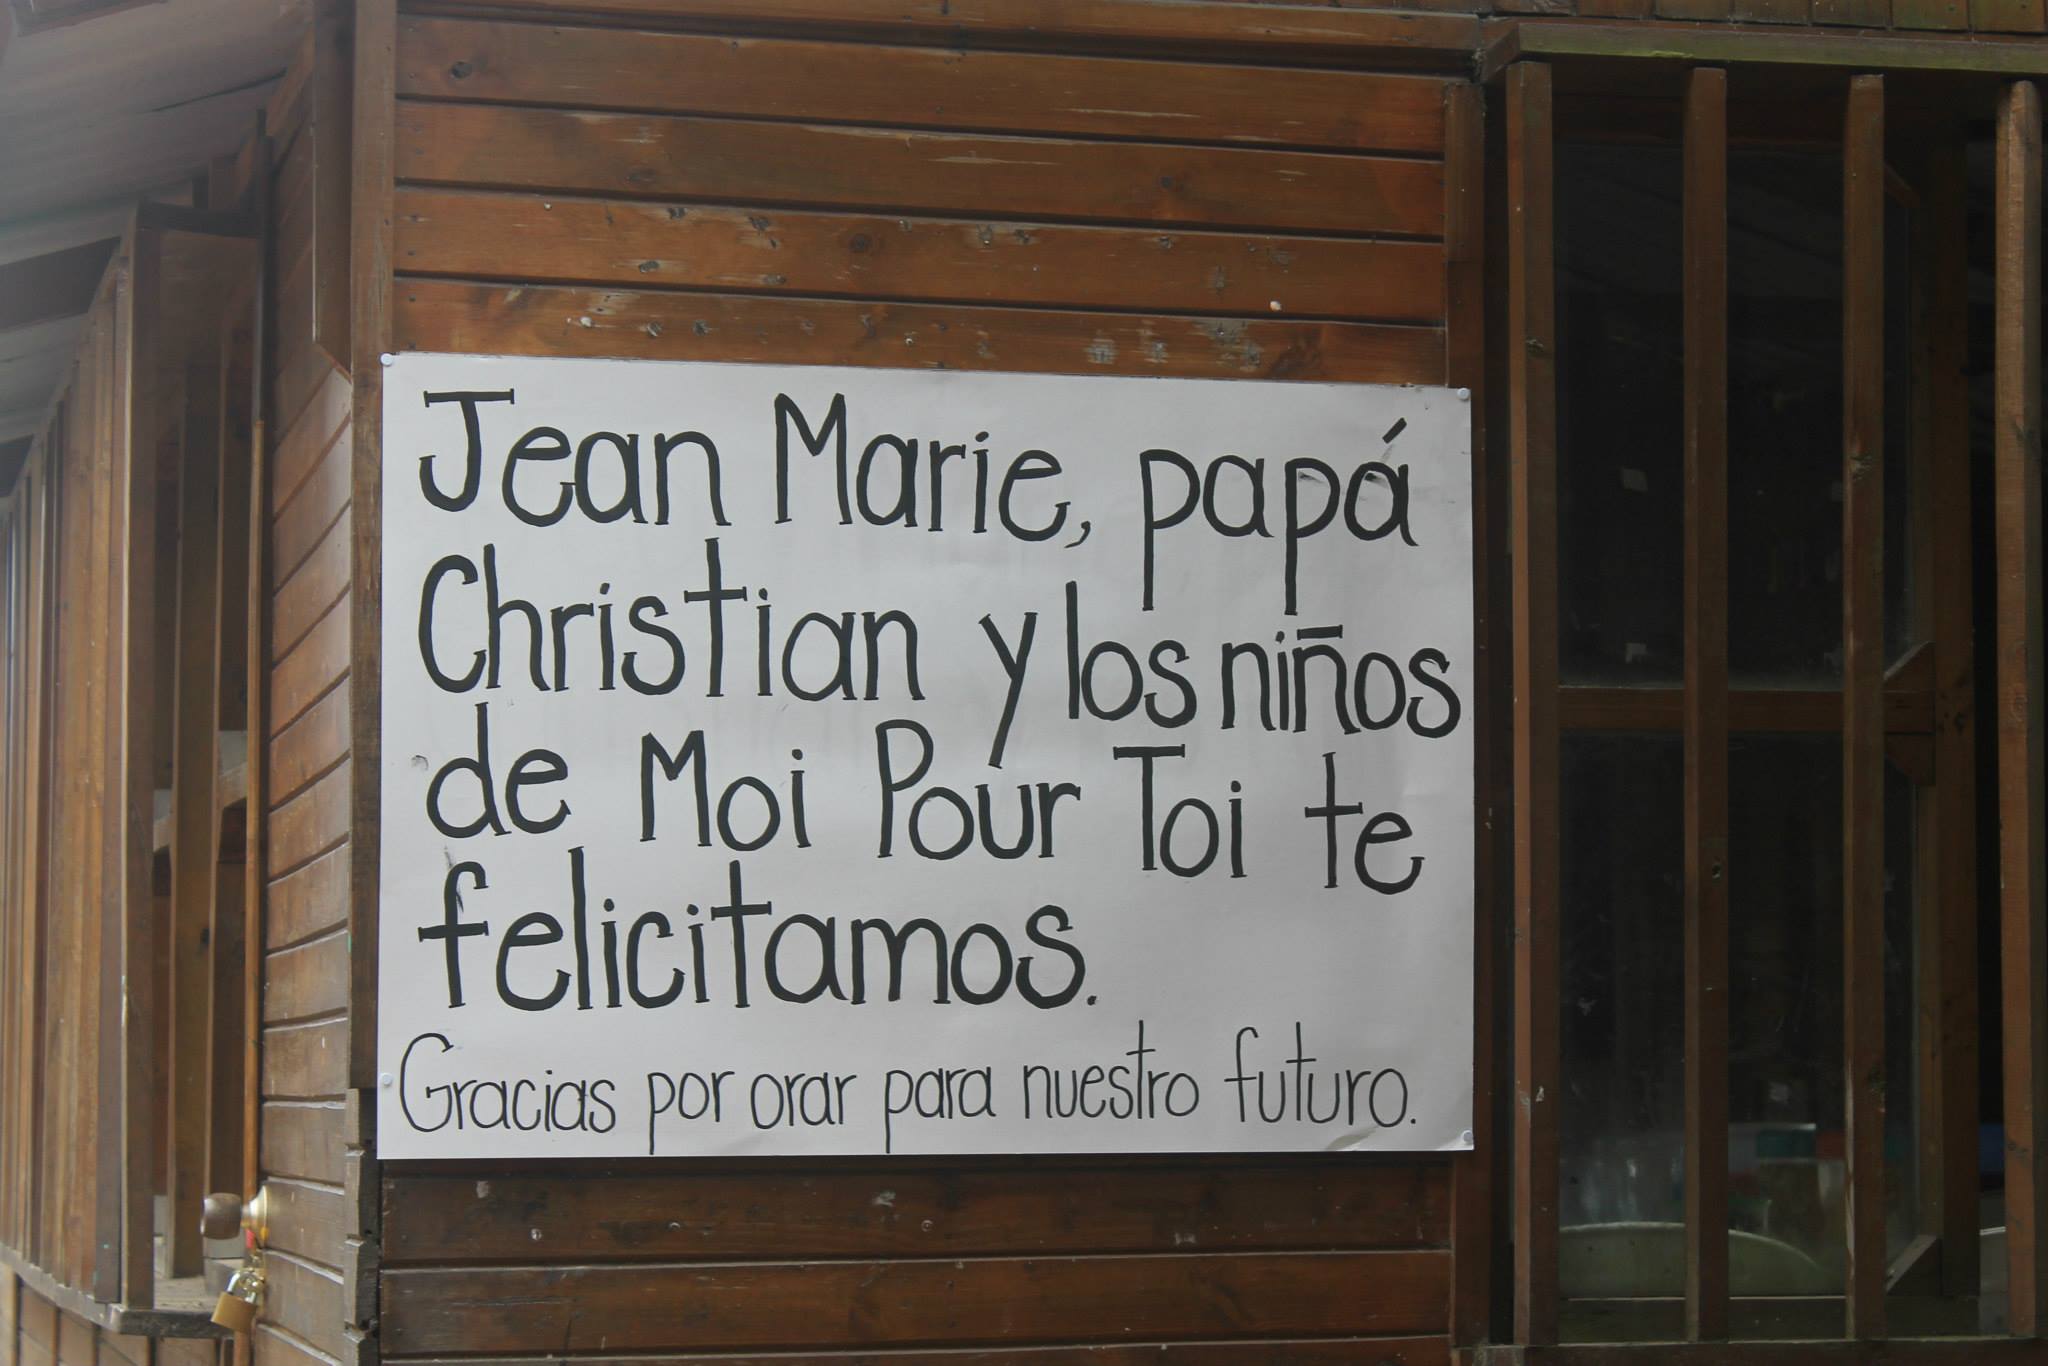 Jean Marie, papá
Christian y los niños
de Moi Pour Toi te
felicitamos.
Gracias por orar para nuestro futuro.